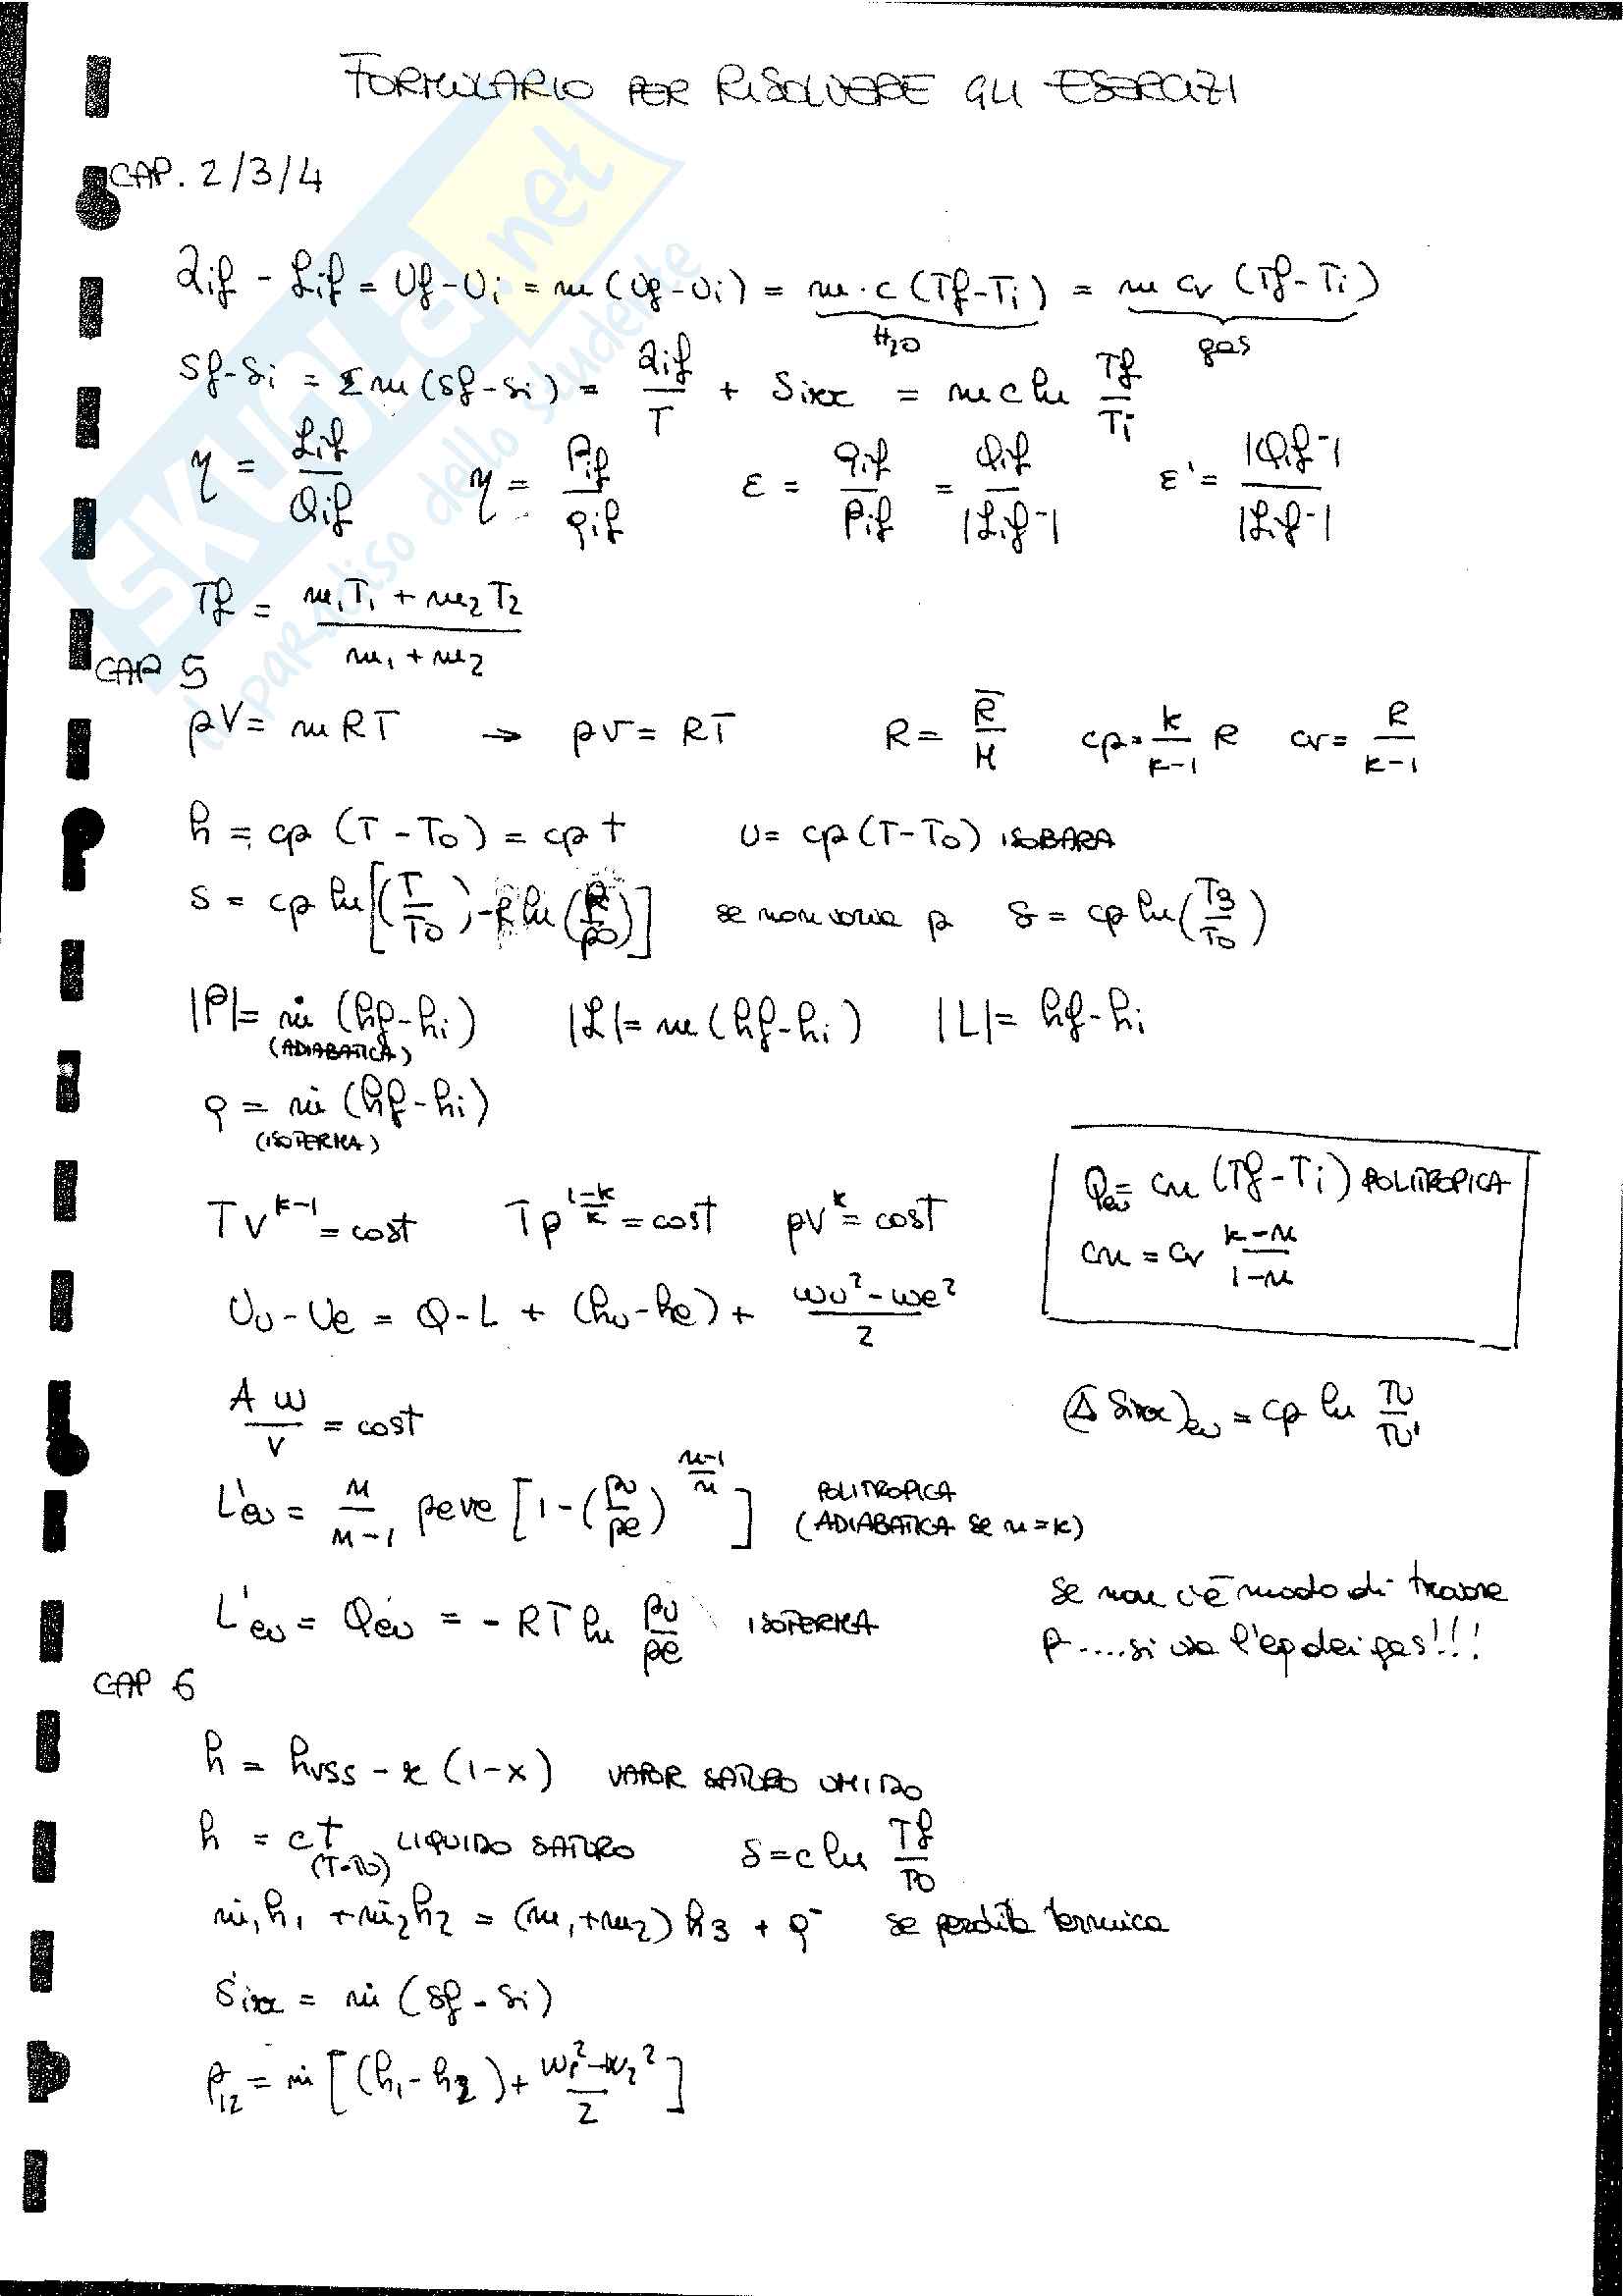 FORMULARIO PER RISOLVERE GLI ESERCIZI
CAP. 2/3/4
Qif - Lif = Uf - Ui = m (Uf - Ui) = m · c (Tf - Ti) = m cv (Tf - Ti)
H2O gas
Sf - Si = Σ m (sf - si) = Qif / T + Sirr = m c ln Tf / Ti
η = Lif / Qif η = Pif / qif ε = qif / Pif = Qif / |Lif⁻| ε' = |Qif⁻| / |Lif⁻|
Tf = m1T1 + m2T2 / m1 + m2
CAP 5
pV = mRT → pv = RT R = R̅ / M cp = k / k-1 R cv = R / k-1
h = cp (T - To) = cp t U = cp (T - To) ISOBARA
s = cp ln [(T / To) - R ln (p / po)] se non varia p s = cp ln (T3 / To)
|P| = ṁ (hf - hi) |L| = m (hf - hi) |L| = hf - hi
(ADIABATICA)
q = ṁ (hf - hi)
(ISOTERMA)
Qeu = cn (Tf - Ti) POLITROPICA
cn = cv k-n / 1-n
T v^k-1 = cost T p^1-k/k = cost pv^k = cost
Uu - Ue = Q - L + (hu - he) + wu² - we² / 2
A w / v = cost
(Δ Sirr)eu = cp ln Tu / Tu'
L'eu = n / n-1 peve [1 - (pu / pe)^n-1/n] POLITROPICA
(ADIABATICA se n = k)
L'eu = Qeu = - RT ln pu / pe ISOTERMA
se non c'è modo di trovare
p ....si usa l'eq dei gas!!!
CAP 6
h = hvss - r (1 - x) VAPOR SATURO UMIDO
h = ct LIQUIDO SATURO s = c ln Tf / To
(T-To)
ṁ1h1 + ṁ2h2 = (m1 + m2) h3 + q⁻ se perdita termica
Ṡirr = ṁ (sf - si)
P12 = ṁ [(h1 - h2) + w1² - w2² / 2]
SKUOLA.net
il paradiso dello studente